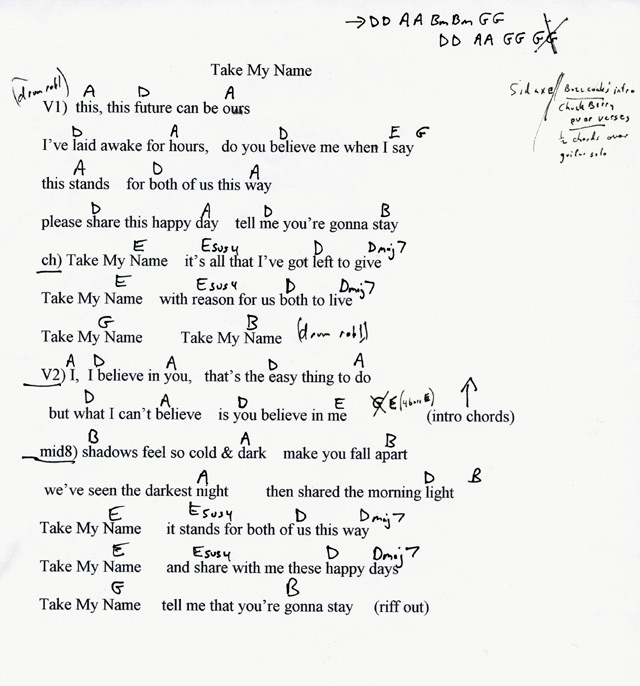 → DD AA Bm Bm GG
DD AA GG GG
Take My Name
(drum roll) A D A
V1) this, this future can be ours
D A D E G
I've laid awake for hours, do you believe me when I say
A D A
this stands for both of us this way
D A D B
please share this happy day tell me you're gonna stay
E Esus4 D Dmaj7
ch) Take My Name it's all that I've got left to give
E Esus4 D Dmaj7
Take My Name with reason for us both to live
G B (drum roll)
Take My Name Take My Name
A D A D A
V2) I, I believe in you, that's the easy thing to do
D A D E E (4 bars E) ↑
but what I can't believe is you believe in me (intro chords)
B A B
mid8) shadows feel so cold & dark make you fall apart
A D B
we've seen the darkest night then shared the morning light
E Esus4 D Dmaj7
Take My Name it stands for both of us this way
E Esus4 D Dmaj7
Take My Name and share with me these happy days
G B
Take My Name tell me that you're gonna stay (riff out)
Buzzcocks' intro
Chuck Berry
over verses
½ chords over
guitar solo